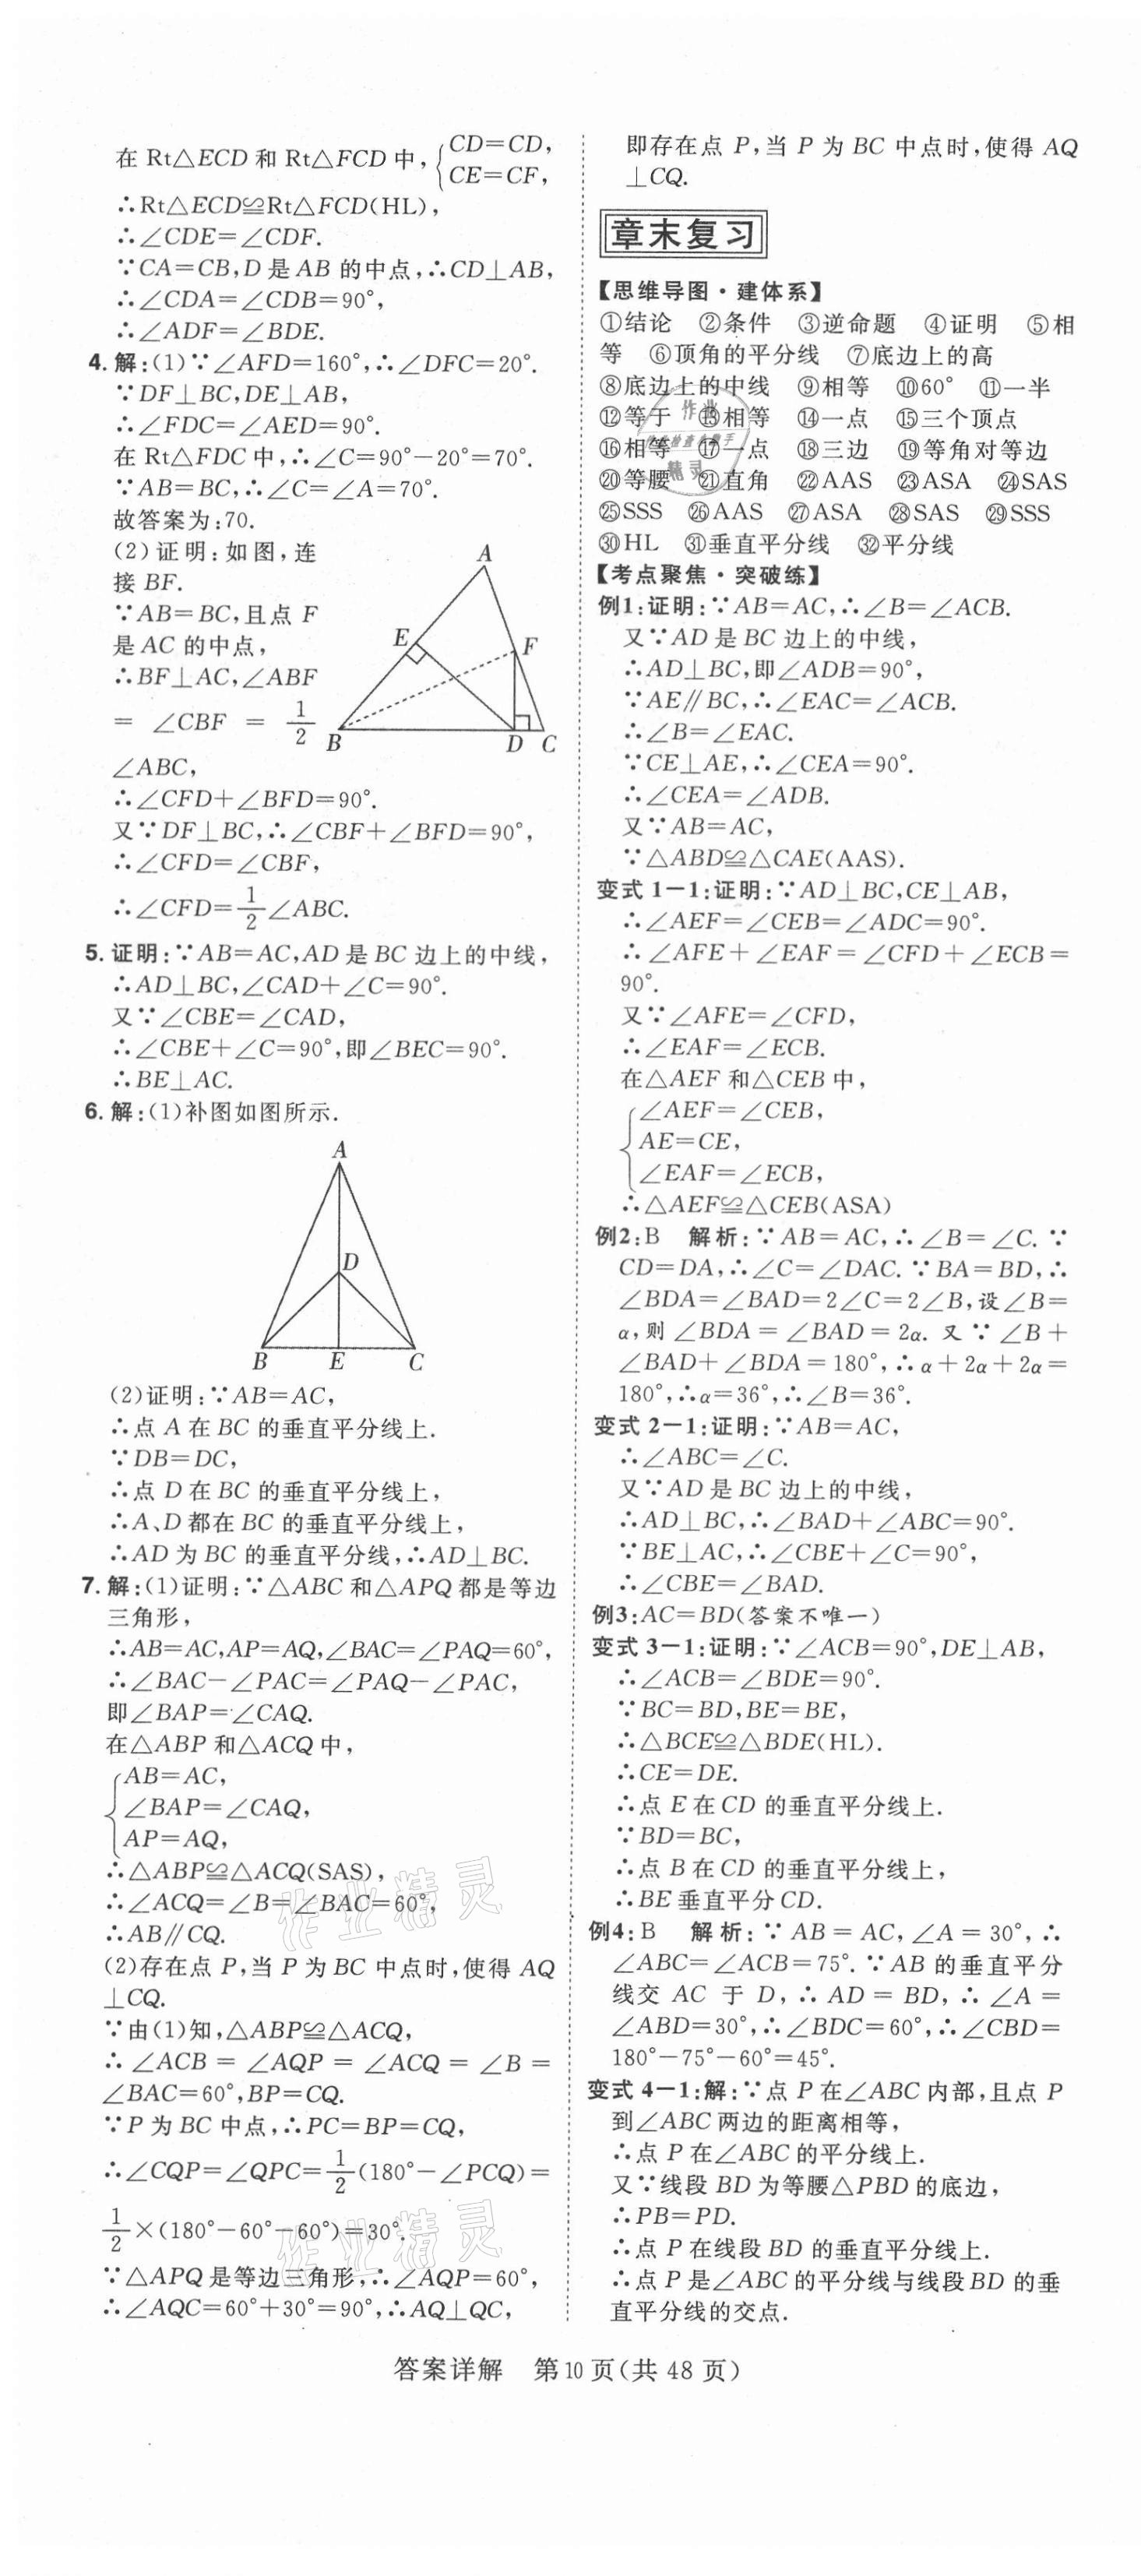 在 Rt△ECD 和 Rt△FCD 中,{CD=CD,
CE=CF,
∴Rt△ECD≌Rt△FCD(HL),
∴∠CDE=∠CDF.
∵CA=CB,D 是 AB 的中点,∴CD⊥AB,
∴∠CDA=∠CDB=90°,
∴∠ADF=∠BDE.
4. 解:(1)∵∠AFD=160°,∴∠DFC=20°.
∵DF⊥BC,DE⊥AB,
∴∠FDC=∠AED=90°.
在 Rt△FDC 中,∴∠C=90°-20°=70°.
∵AB=BC,∴∠C=∠A=70°.
故答案为:70.
(2)证明:如图,连
接 BF.
∵AB=BC,且点 F
是 AC 的中点,
∴BF⊥AC,∠ABF
= ∠CBF = 1/2
∠ABC,
A
E
F
B
D
C
∴∠CFD+∠BFD=90°.
又∵DF⊥BC,∴∠CBF+∠BFD=90°,
∴∠CFD=∠CBF,
∴∠CFD=1/2∠ABC.
5. 证明:∵AB=AC,AD 是 BC 边上的中线,
∴AD⊥BC,∠CAD+∠C=90°.
又∵∠CBE=∠CAD,
∴∠CBE+∠C=90°,即∠BEC=90°.
∴BE⊥AC.
6. 解:(1)补图如图所示.
A
D
B
E
C
(2)证明:∵AB=AC,
∴点 A 在 BC 的垂直平分线上.
∵DB=DC,
∴点 D 在 BC 的垂直平分线上,
∴A、D 都在 BC 的垂直平分线上,
∴AD 为 BC 的垂直平分线,∴AD⊥BC.
7. 解:(1)证明:∵△ABC 和△APQ 都是等边
三角形,
∴AB=AC,AP=AQ,∠BAC=∠PAQ=60°,
∴∠BAC-∠PAC=∠PAQ-∠PAC,
即∠BAP=∠CAQ.
在△ABP 和△ACQ 中,
{AB=AC,
∠BAP=∠CAQ,
AP=AQ,
∴△ABP≌△ACQ(SAS),
∴∠ACQ=∠B=∠BAC=60°,
∴AB∥CQ.
(2)存在点 P,当 P 为 BC 中点时,使得 AQ
⊥CQ.
∵由(1)知,△ABP≌△ACQ,
∴∠ACB=∠AQP=∠ACQ=∠B=
∠BAC=60°,BP=CQ.
∵P 为 BC 中点,∴PC=BP=CQ,
∴∠CQP=∠QPC=1/2(180°-∠PCQ)=
1/2×(180°-60°-60°)=30°.
∵△APQ 是等边三角形,∴∠AQP=60°,
∴∠AQC=60°+30°=90°,∴AQ⊥QC,
即存在点 P,当 P 为 BC 中点时,使得 AQ
⊥CQ.
章末复习
【思维导图·建体系】
①结论 ②条件 ③逆命题 ④证明 ⑤相
等 ⑥顶角的平分线 ⑦底边上的高
⑧底边上的中线 ⑨相等 ⑩60° ⑪一半
⑫等于 ⑬相等 ⑭一点 ⑮三个顶点
⑯相等 ⑰一点 ⑱三边 ⑲等角对等边
⑳等腰 ㉑直角 ㉒AAS ㉓ASA ㉔SAS
㉕SSS ㉖AAS ㉗ASA ㉘SAS ㉙SSS
㉚HL ㉛垂直平分线 ㉜平分线
【考点聚焦·突破练】
例1:证明:∵AB=AC,∴∠B=∠ACB.
又∵AD 是 BC 边上的中线,
∴AD⊥BC,即∠ADB=90°,
∵AE∥BC,∴∠EAC=∠ACB.
∴∠B=∠EAC.
∵CE⊥AE,∴∠CEA=90°.
∴∠CEA=∠ADB.
又∵AB=AC,
∵△ABD≌△CAE(AAS).
变式 1-1:证明:∵AD⊥BC,CE⊥AB,
∴∠AEF=∠CEB=∠ADC=90°.
∴∠AFE+∠EAF=∠CFD+∠ECB=
90°.
又∵∠AFE=∠CFD,
∴∠EAF=∠ECB.
在△AEF 和△CEB 中,
{∠AEF=∠CEB,
AE=CE,
∠EAF=∠ECB,
∴△AEF≌△CEB(ASA)
例2:B 解析:∵AB=AC,∴∠B=∠C. ∵
CD=DA,∴∠C=∠DAC. ∵BA=BD,∴
∠BDA=∠BAD=2∠C=2∠B,设∠B=
α,则∠BDA=∠BAD=2α. 又∵∠B+
∠BAD+∠BDA=180°,∴α+2α+2α=
180°,∴α=36°,∴∠B=36°.
变式 2-1:证明:∵AB=AC,
∴∠ABC=∠C.
又∵AD 是 BC 边上的中线,
∴AD⊥BC,∴∠BAD+∠ABC=90°.
∵BE⊥AC,∴∠CBE+∠C=90°,
∴∠CBE=∠BAD.
例3:AC=BD(答案不唯一)
变式 3-1:证明:∵∠ACB=90°,DE⊥AB,
∴∠ACB=∠BDE=90°.
∵BC=BD,BE=BE,
∴△BCE≌△BDE(HL).
∴CE=DE.
∴点 E 在 CD 的垂直平分线上.
∵BD=BC,
∴点 B 在 CD 的垂直平分线上,
∴BE 垂直平分 CD.
例4:B 解析:∵AB=AC,∠A=30°,∴
∠ABC=∠ACB=75°. ∵AB 的垂直平分
线交 AC 于 D,∴AD=BD,∴∠A=
∠ABD=30°,∴∠BDC=60°,∴∠CBD=
180°-75°-60°=45°.
变式 4-1:解:∵点 P 在∠ABC 内部,且点 P
到∠ABC 两边的距离相等,
∴点 P 在∠ABC 的平分线上.
又∵线段 BD 为等腰△PBD 的底边,
∴PB=PD.
∴点 P 在线段 BD 的垂直平分线上.
∴点 P 是∠ABC 的平分线与线段 BD 的垂
直平分线的交点.
答案详解 第 10 页(共 48 页)
作业精灵
作业精灵
作业
精灵